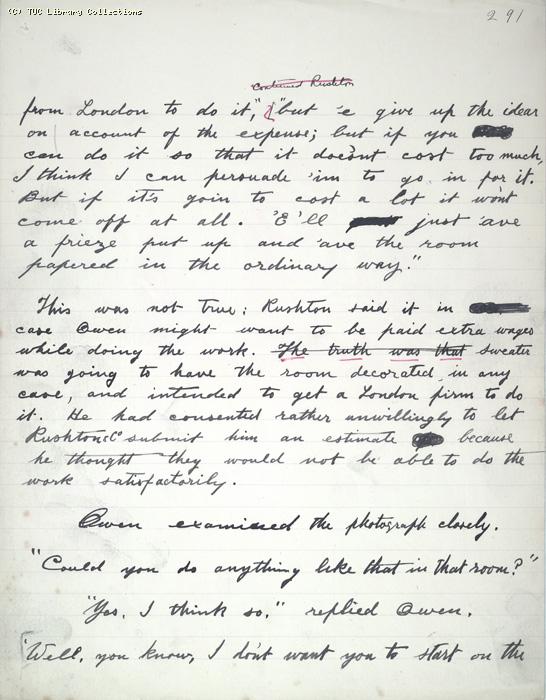 (C) TUC Library Collections
291
continued Rushton
from London to do it," "but 'e give up the idear
on account of the expense; but if you
can do it so that it doesn't cost too much,
I think I can persuade 'im to go in for it.
But if it's goin to cost a lot it wont
come off at all. 'E'll just 'ave
a frieze put up and 'ave the room
papered in the ordinary way."
This was not true: Rushton said it in
case Owen might want to be paid extra wages
while doing the work. The truth was that Sweater
was going to have the room decorated in any
case, and intended to get a London firm to do
it. He had consented rather unwillingly to let
Rushton & Co submit him an estimate because
he thought they would not be able to do the
work satisfactorily.
Owen examined the photograph closely.
"Could you do anything like that in that room?"
"Yes, I think so," replied Owen.
"Well, you know, I don't want you to start on the